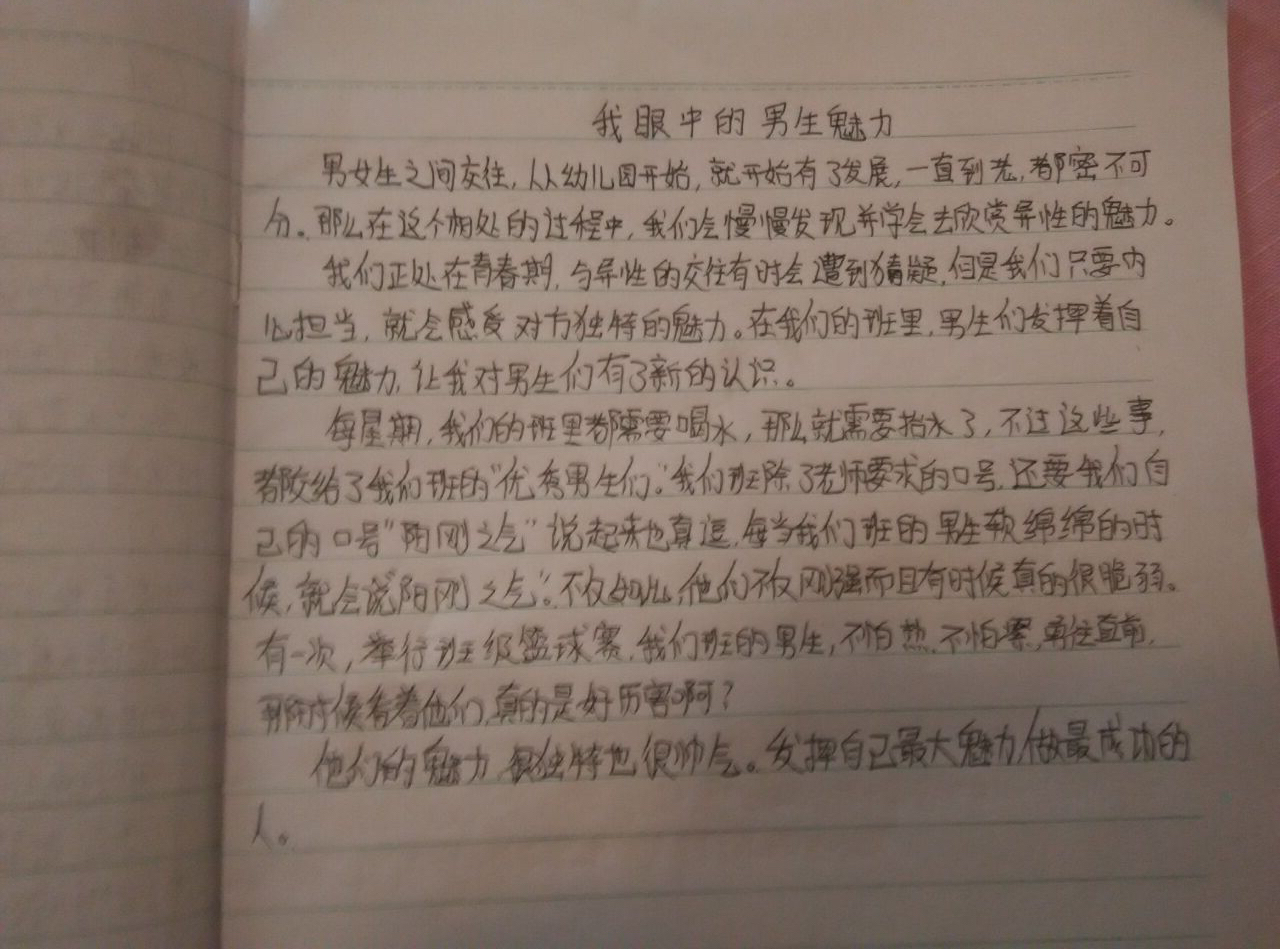 我眼中的男生魅力
男女生之间交往,从幼儿园开始,就开始有了发展,一直到老,都密不可
分。那么在这个相处的过程中,我们会慢慢发现并学会去欣赏异性的魅力。
我们正处在青春期,与异性的交往有时会遭到猜疑,但是我们只要内
心担当,就会感受对方独特的魅力。在我们的班里,男生们发挥着自
己的魅力,让我对男生们有了新的认识。
每星期,我们的班里都需要喝水,那么就需要抬水了,不过这些事,
都交给了我们班的“优秀男生们”。我们班除了老师要求的口号,还要我们自
己的口号“阳刚之气”说起来也真逗,每当我们班的男生软绵绵的时
候,就会说“阳刚之气”。不仅如此,他们不仅刚强而且有时候真的很脆弱。
有一次,举行班级篮球赛,我们班的男生,不怕热,不怕累,勇往直前,
那时候看着他们,真的是好厉害啊?
他们的魅力,很独特也很帅气。发挥自己最大魅力,做最成功的
人。